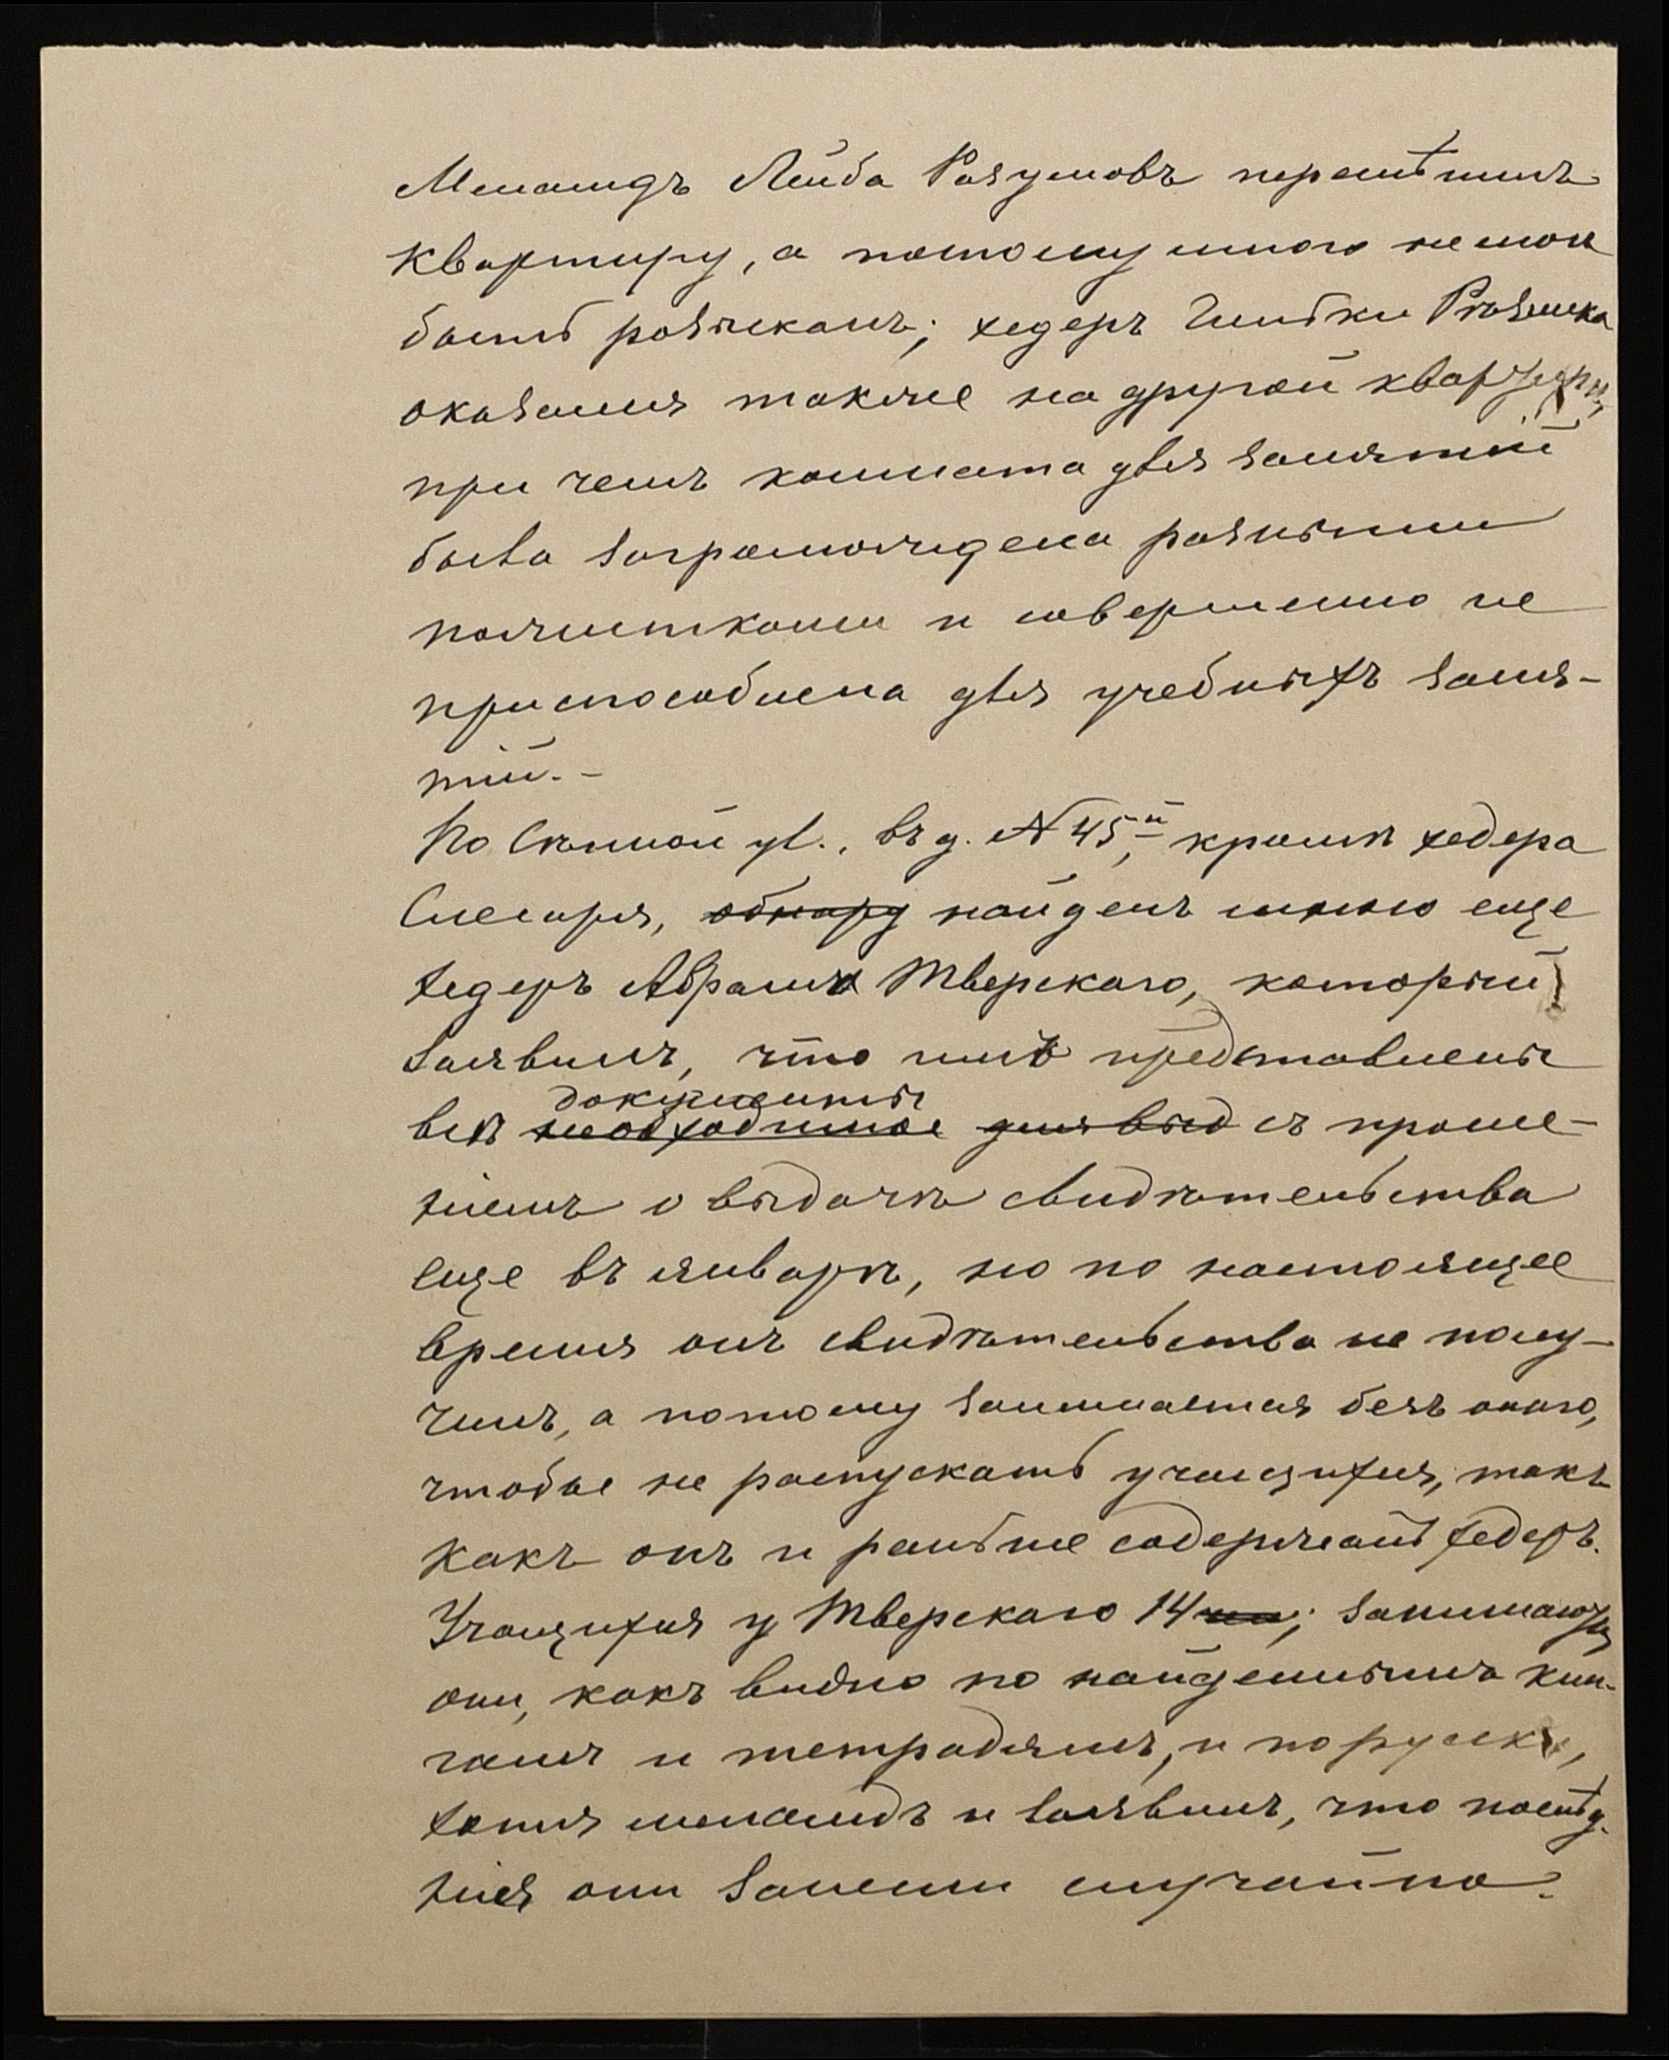 Меламдъ Лейба Разумовъ перемѣнилъ
квартиру, а потому мною не мог
быть розысканъ; хедеръ Гильки Рѣзника
оказался также на другой квартирѣ,
при чемъ комната для занятій
была загромождена разными
пожитками и совершенно не
приспособлена для учебныхъ заня-
тій. –
По Сѣнной ул., въ д. № 45й, кромѣ хедера
Слесаря, обнару найденъ мною еще
хедеръ Абрама Тверскаго, который
заявилъ, что имъ представлены
документы
всѣ необходимое для выд съ проше-
ніемъ о выдачѣ свидѣтельства
еще въ январѣ, но по настоящее
время онъ свидѣтельства не полу-
чилъ, а потому занимается безъ онаго,
чтобы не распускать учащихся, такъ
какъ онъ и раньше содержалъ хедеръ.
Учащихся у Тверскаго 14; занимаются
они, какъ видно по найденнымъ кни-
гамъ и тетрадямъ, и по русски,
хотя меламдъ и заявилъ, что послѣд-
нія они занесли случайно.